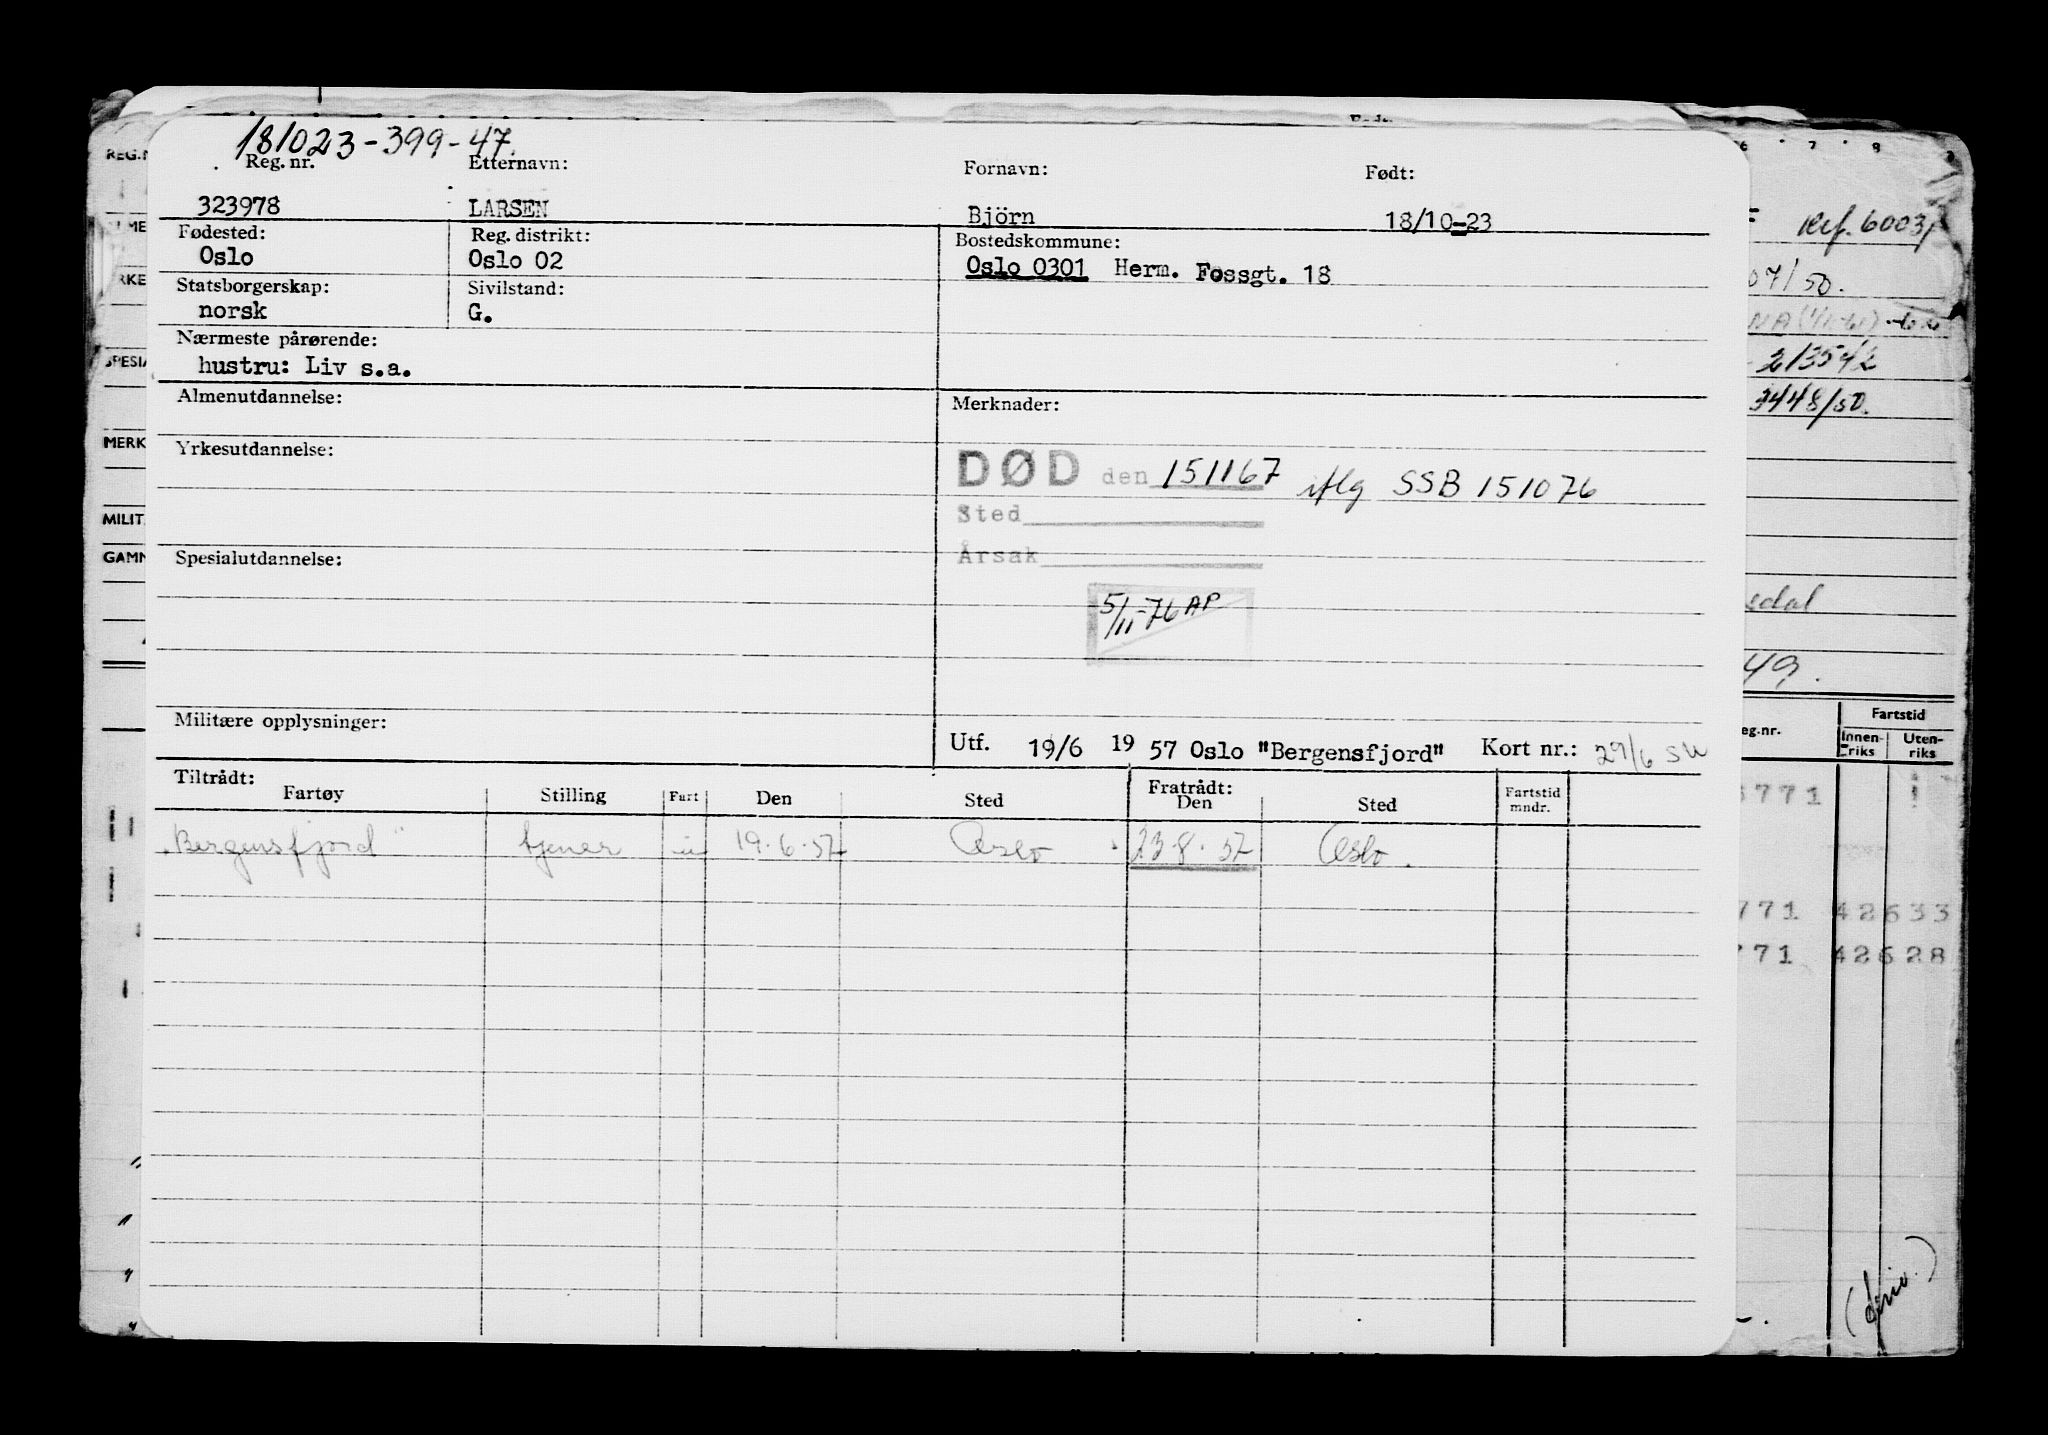 181023-399-47.
Reg. nr. Etternavn: Fornavn: Født:
323978 LARSEN Björn 18/10-23
Fødested: Reg. distrikt: Bostedskommune:
Oslo Oslo 02 Oslo 0301 Herm. Fossgt. 18
Statsborgerskap: Sivilstand:
norsk G.
Nærmeste pårørende:
hustru: Liv s.a.
Almenutdannelse: Merknader:
Yrkesutdannelse:
DØD den 151167 iflg SSB 151076
Sted
Årsak
Spesialutdannelse:
5/11-76 AP
Militære opplysninger:
Utf. 19/6 19 57 Oslo "Bergensfjord" Kort nr.: 29/6 SW
Tiltrådt: Fratrådt:
Fartøy Stilling Fart Den Sted Den Sted Fartstid mndr.
"Bergensfjord" tjener u 19.6.57 Oslo 23.8.57 Oslo.
REG.N
SPESIA
MERK
MILIT
GAMN
6 7 8 9
Ref. 6003
07/50.
213542
3448/50.
edal
49.
eg.nr. Fartstid
Innen-riks Uten-riks
771
771 42633
771 42628